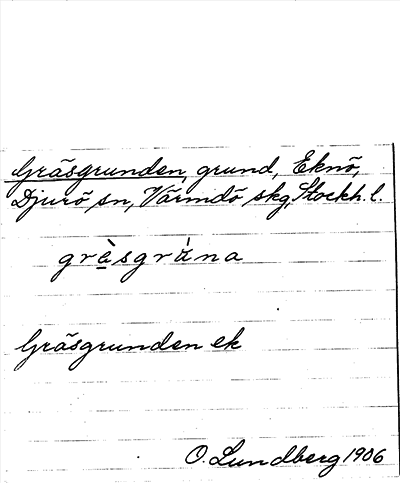 Gräsgrunden, grund, Eknö,
Djurö sn, Värmdö skg, Stockh. l.
Gräsgrunden ek
O. Lundberg 1906